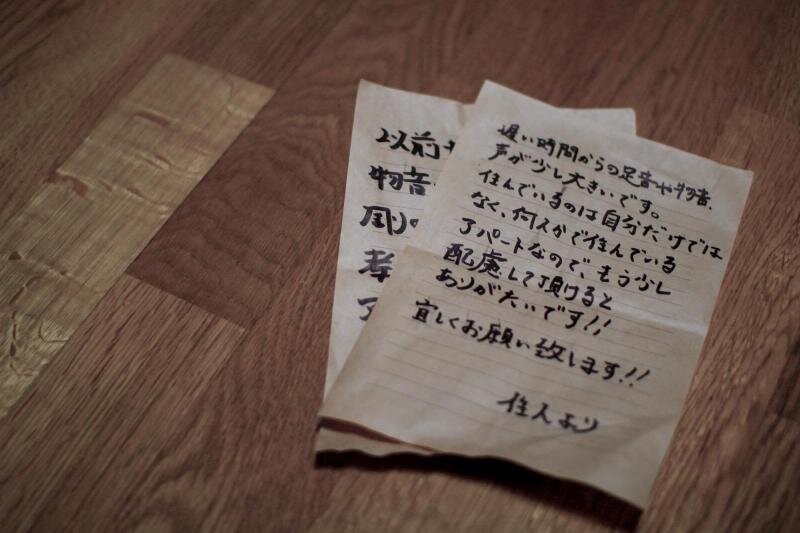 遅い時間からの足音や物音、
声が少し大きいです。
住んでいるのは自分だけでは
なく、何人かで住んでいる
アパートなので、もう少し
配慮して頂けると
ありがたいです!!
宜しくお願い致します!!
住人より
以前
物音